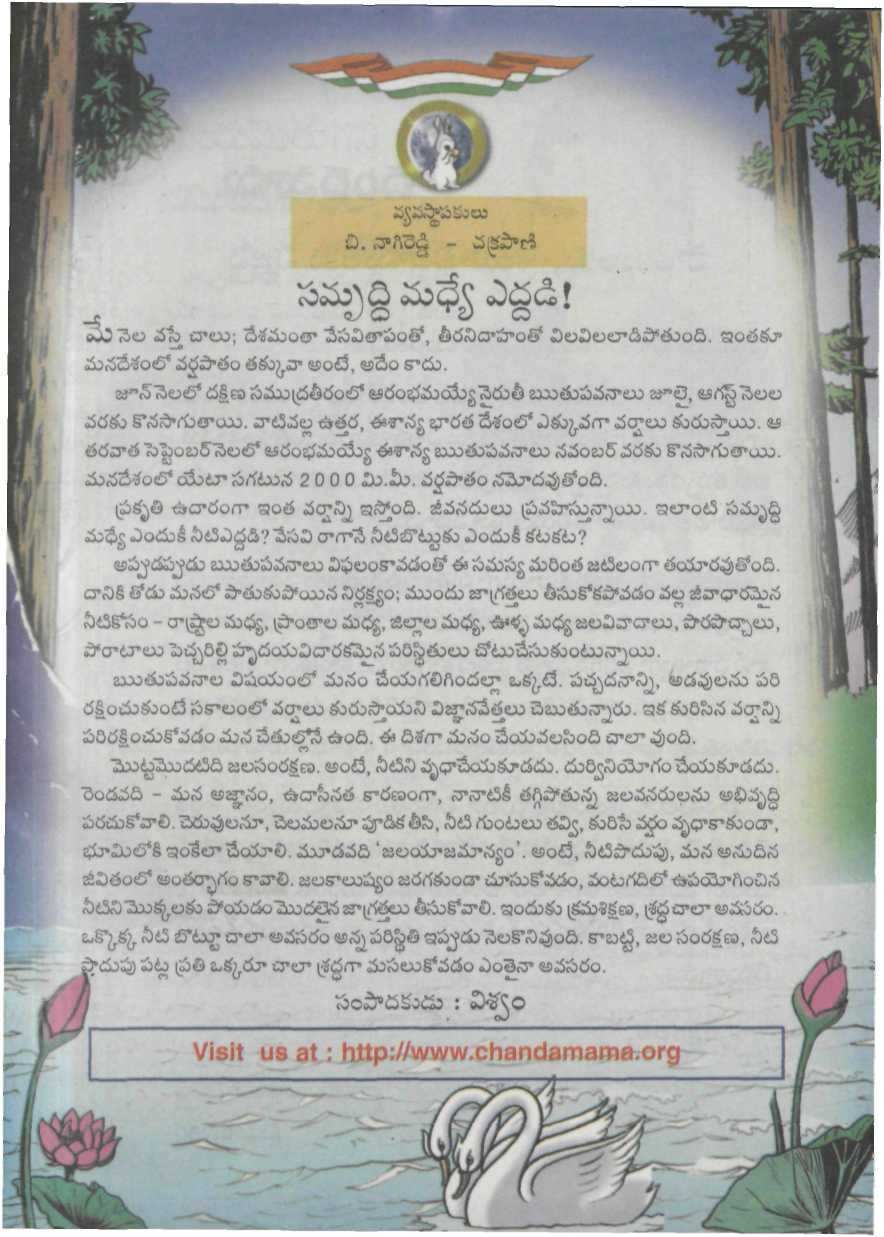 వ్యవస్థాపకులు
బి. నాగిరెడ్డి - చక్రపాణి
సమృద్ధి మధ్యే ఎద్దడి!
మే నెల వస్తే చాలు; దేశమంతా వేసవితాపంతో, తీరనిదాహంతో విలవిలలాడిపోతుంది. ఇంతకూ
మనదేశంలో వర్షపాతం తక్కువా అంటే, అదేం కాదు.
జూన్ నెలలో దక్షిణ సముద్రతీరంలో ఆరంభమయ్యే నైరుతీ ఋతుపవనాలు జూలై, ఆగస్ట్ నెలల
వరకు కొనసాగుతాయి. వాటివల్ల ఉత్తర, ఈశాన్య భారత దేశంలో ఎక్కువగా వర్షాలు కురుస్తాయి. ఆ
తరవాత సెప్టెంబర్ నెలలో ఆరంభమయ్యే ఈశాన్య ఋతుపవనాలు నవంబర్ వరకు కొనసాగుతాయి.
మనదేశంలో యేటా సగటున 2000 మి.మీ. వర్షపాతం నమోదవుతోంది.
ప్రకృతి ఉదారంగా ఇంత వర్షాన్ని ఇస్తోంది. జీవనదులు ప్రవహిస్తున్నాయి. ఇలాంటి సమృద్ధి
మధ్యే ఎందుకీ నీటిఎద్దడి? వేసవి రాగానే నీటిబొట్టుకు ఎందుకీ కటకట?
అప్పుడప్పుడు ఋతుపవనాలు విఫలంకావడంతో ఈ సమస్య మరింత జటిలంగా తయారవుతోంది.
దానికి తోడు మనలో పాతుకుపోయిన నిర్లక్ష్యం; ముందు జాగ్రత్తలు తీసుకోకపోవడం వల్ల జీవాధారమైన
నీటికోసం - రాష్ట్రాల మధ్య, ప్రాంతాల మధ్య, జిల్లాల మధ్య, ఊళ్ళ మధ్య జలవివాదాలు, పొరపొచ్చాలు,
పోరాటాలు పెచ్చరిల్లి హృదయవిదారకమైన పరిస్థితులు చోటుచేసుకుంటున్నాయి.
ఋతుపవనాల విషయంలో మనం చేయగలిగిందల్లా ఒక్కటే. పచ్చదనాన్ని, అడవులను పరి
రక్షించుకుంటే సకాలంలో వర్షాలు కురుస్తాయని విజ్ఞానవేత్తలు చెబుతున్నారు. ఇక కురిసిన వర్షాన్ని
పరిరక్షించుకోవడం మన చేతుల్లోనే ఉంది. ఈ దిశగా మనం చేయవలసింది చాలా వుంది.
మొట్టమొదటిది జలసంరక్షణ. అంటే, నీటిని వృథాచేయకూడదు. దుర్వినియోగం చేయకూడదు.
రెండవది - మన అజ్ఞానం, ఉదాసీనత కారణంగా, నానాటికీ తగ్గిపోతున్న జలవనరులను అభివృద్ధి
పరచుకోవాలి. చెరువులనూ, చెలమలనూ పూడిక తీసి, నీటి గుంటలు తవ్వి, కురిసే వర్షం వృథాకాకుండా,
భూమిలోకి ఇంకేలా చేయాలి. మూడవది 'జలయాజమాన్యం'. అంటే, నీటిపొదుపు, మన అనుదిన
జీవితంలో అంతర్భాగం కావాలి. జలకాలుష్యం జరగకుండా చూసుకోవడం, వంటగదిలో ఉపయోగించిన
నీటిని మొక్కలకు పోయడం మొదలైన జాగ్రత్తలు తీసుకోవాలి. ఇందుకు క్రమశిక్షణ, శ్రద్ధ చాలా అవసరం.
ఒక్కొక్క నీటి బొట్టూ చాలా అవసరం అన్న పరిస్థితి ఇప్పుడు నెలకొనివుంది. కాబట్టి, జల సంరక్షణ, నీటి
పొదుపు పట్ల ప్రతి ఒక్కరూ చాలా శ్రద్ధగా మసలుకోవడం ఎంతైనా అవసరం.
సంపాదకుడు : విశ్వం
Visit us at : http://www.chandamama.org